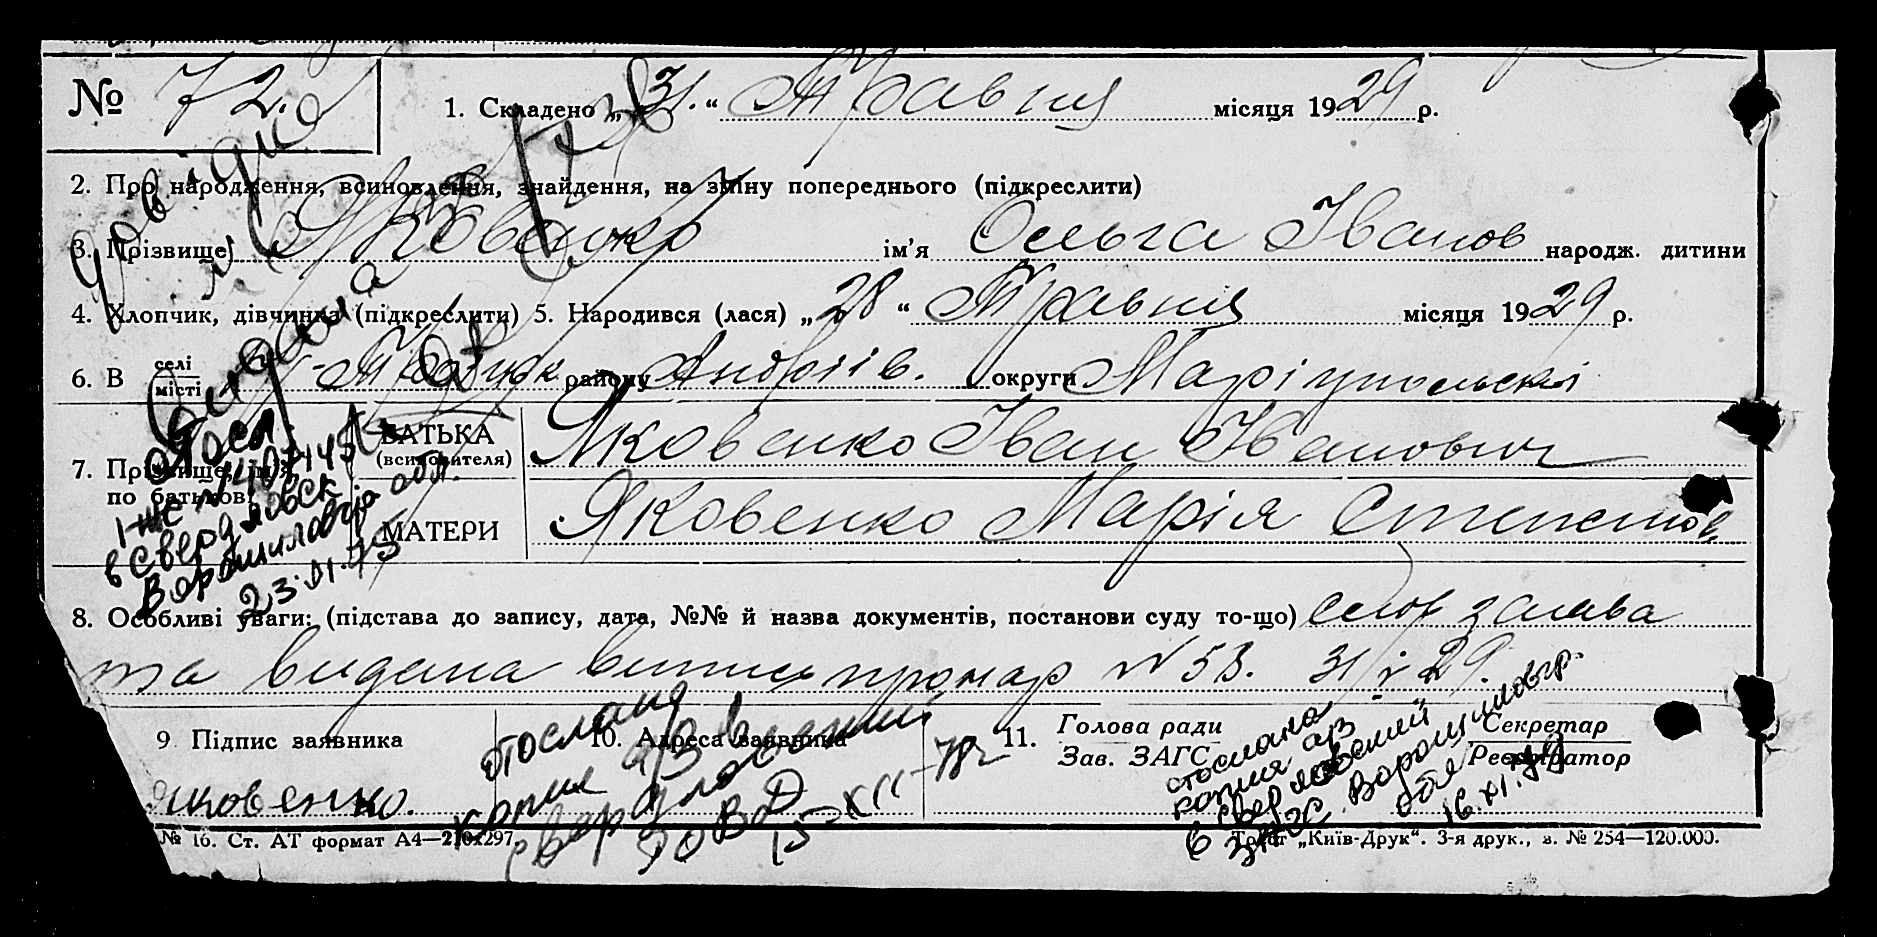 № 72. 1. Складено „31.“ Травня місяця 1929 р.
2. Про народження, всиновлення, знайдення, на зміну попереднього (підкреслити)
3. Прізвище Яковенко ім’я Ольга Іванов народж. дитини
4. Хлопчик, дівчинка (підкреслити) 5. Народився (лася) „28“ Травня місяця 1929 р.
6. В селі місті району Андріів. округи Маріупольскої
7. Прізвище, ім’я по батькові
БАТЬКА (всиновителя) Яковенко Іван Іванович
МАТЕРИ Яковенко Марія Степанов.
Довідка
Видана
в Свердловск
Ворошиловгр обл.
23.01.75
8. Особливі уваги: (підстава до запису, дата, №№ й назва документів, постанови суду то-що) слов заява
та видана випись про нар № 53. 31/V 29.
9 Підпис заявника
Яковенко.
10. Адреса заявника
отослана
копия а/з в
Свердловский
РОВД
15-XII-78г
11. Голова ради
Зав. ЗАГС
Секретар
Реєстратор
отослана
копия а/з
в Свердловский
ЗАГС Ворошиловгр.
обл
№ 16. Ст. АТ формат А4—210х297.
Трест „Київ-Друк“. 3-я друк., з. № 254—120.000.